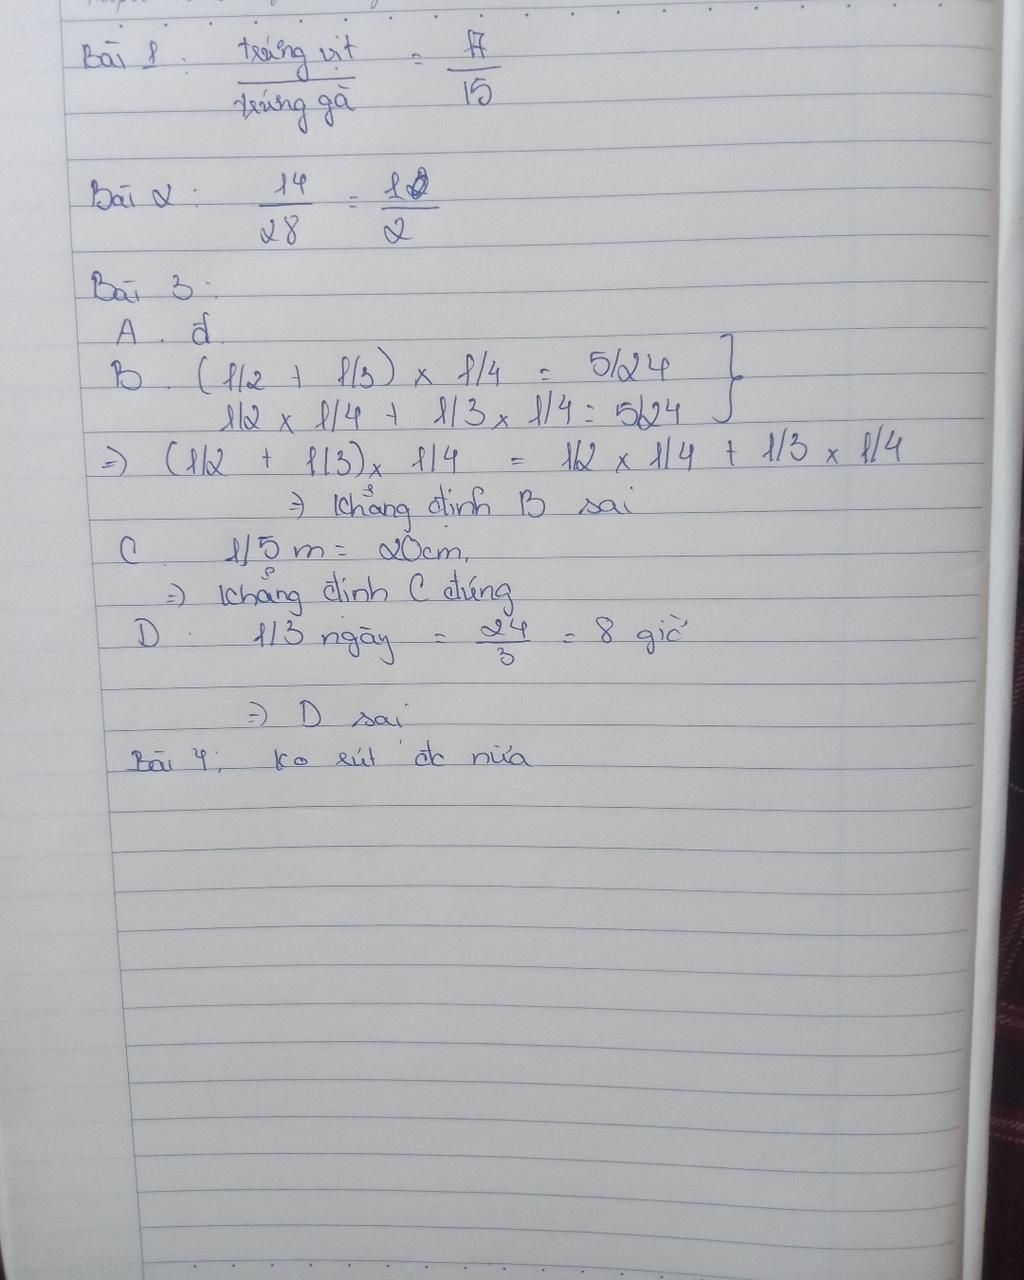 Bài 1: trứng vịt / trứng gà = 17/15
Bài 2: 14/28 = 1/2
Bài 3:
A. đ
B. (1/2 + 1/3) x 1/4 = 5/24 }
1/2 x 1/4 + 1/3 x 1/4 = 5/24
=> (1/2 + 1/3) x 1/4 = 1/2 x 1/4 + 1/3 x 1/4
=> Khẳng định B sai
C. 1/5 m = 20cm.
=> Khẳng định C đúng
D. 1/3 ngày = 24/3 = 8 giờ
=> D sai
Bài 4: ko rút đc nữa